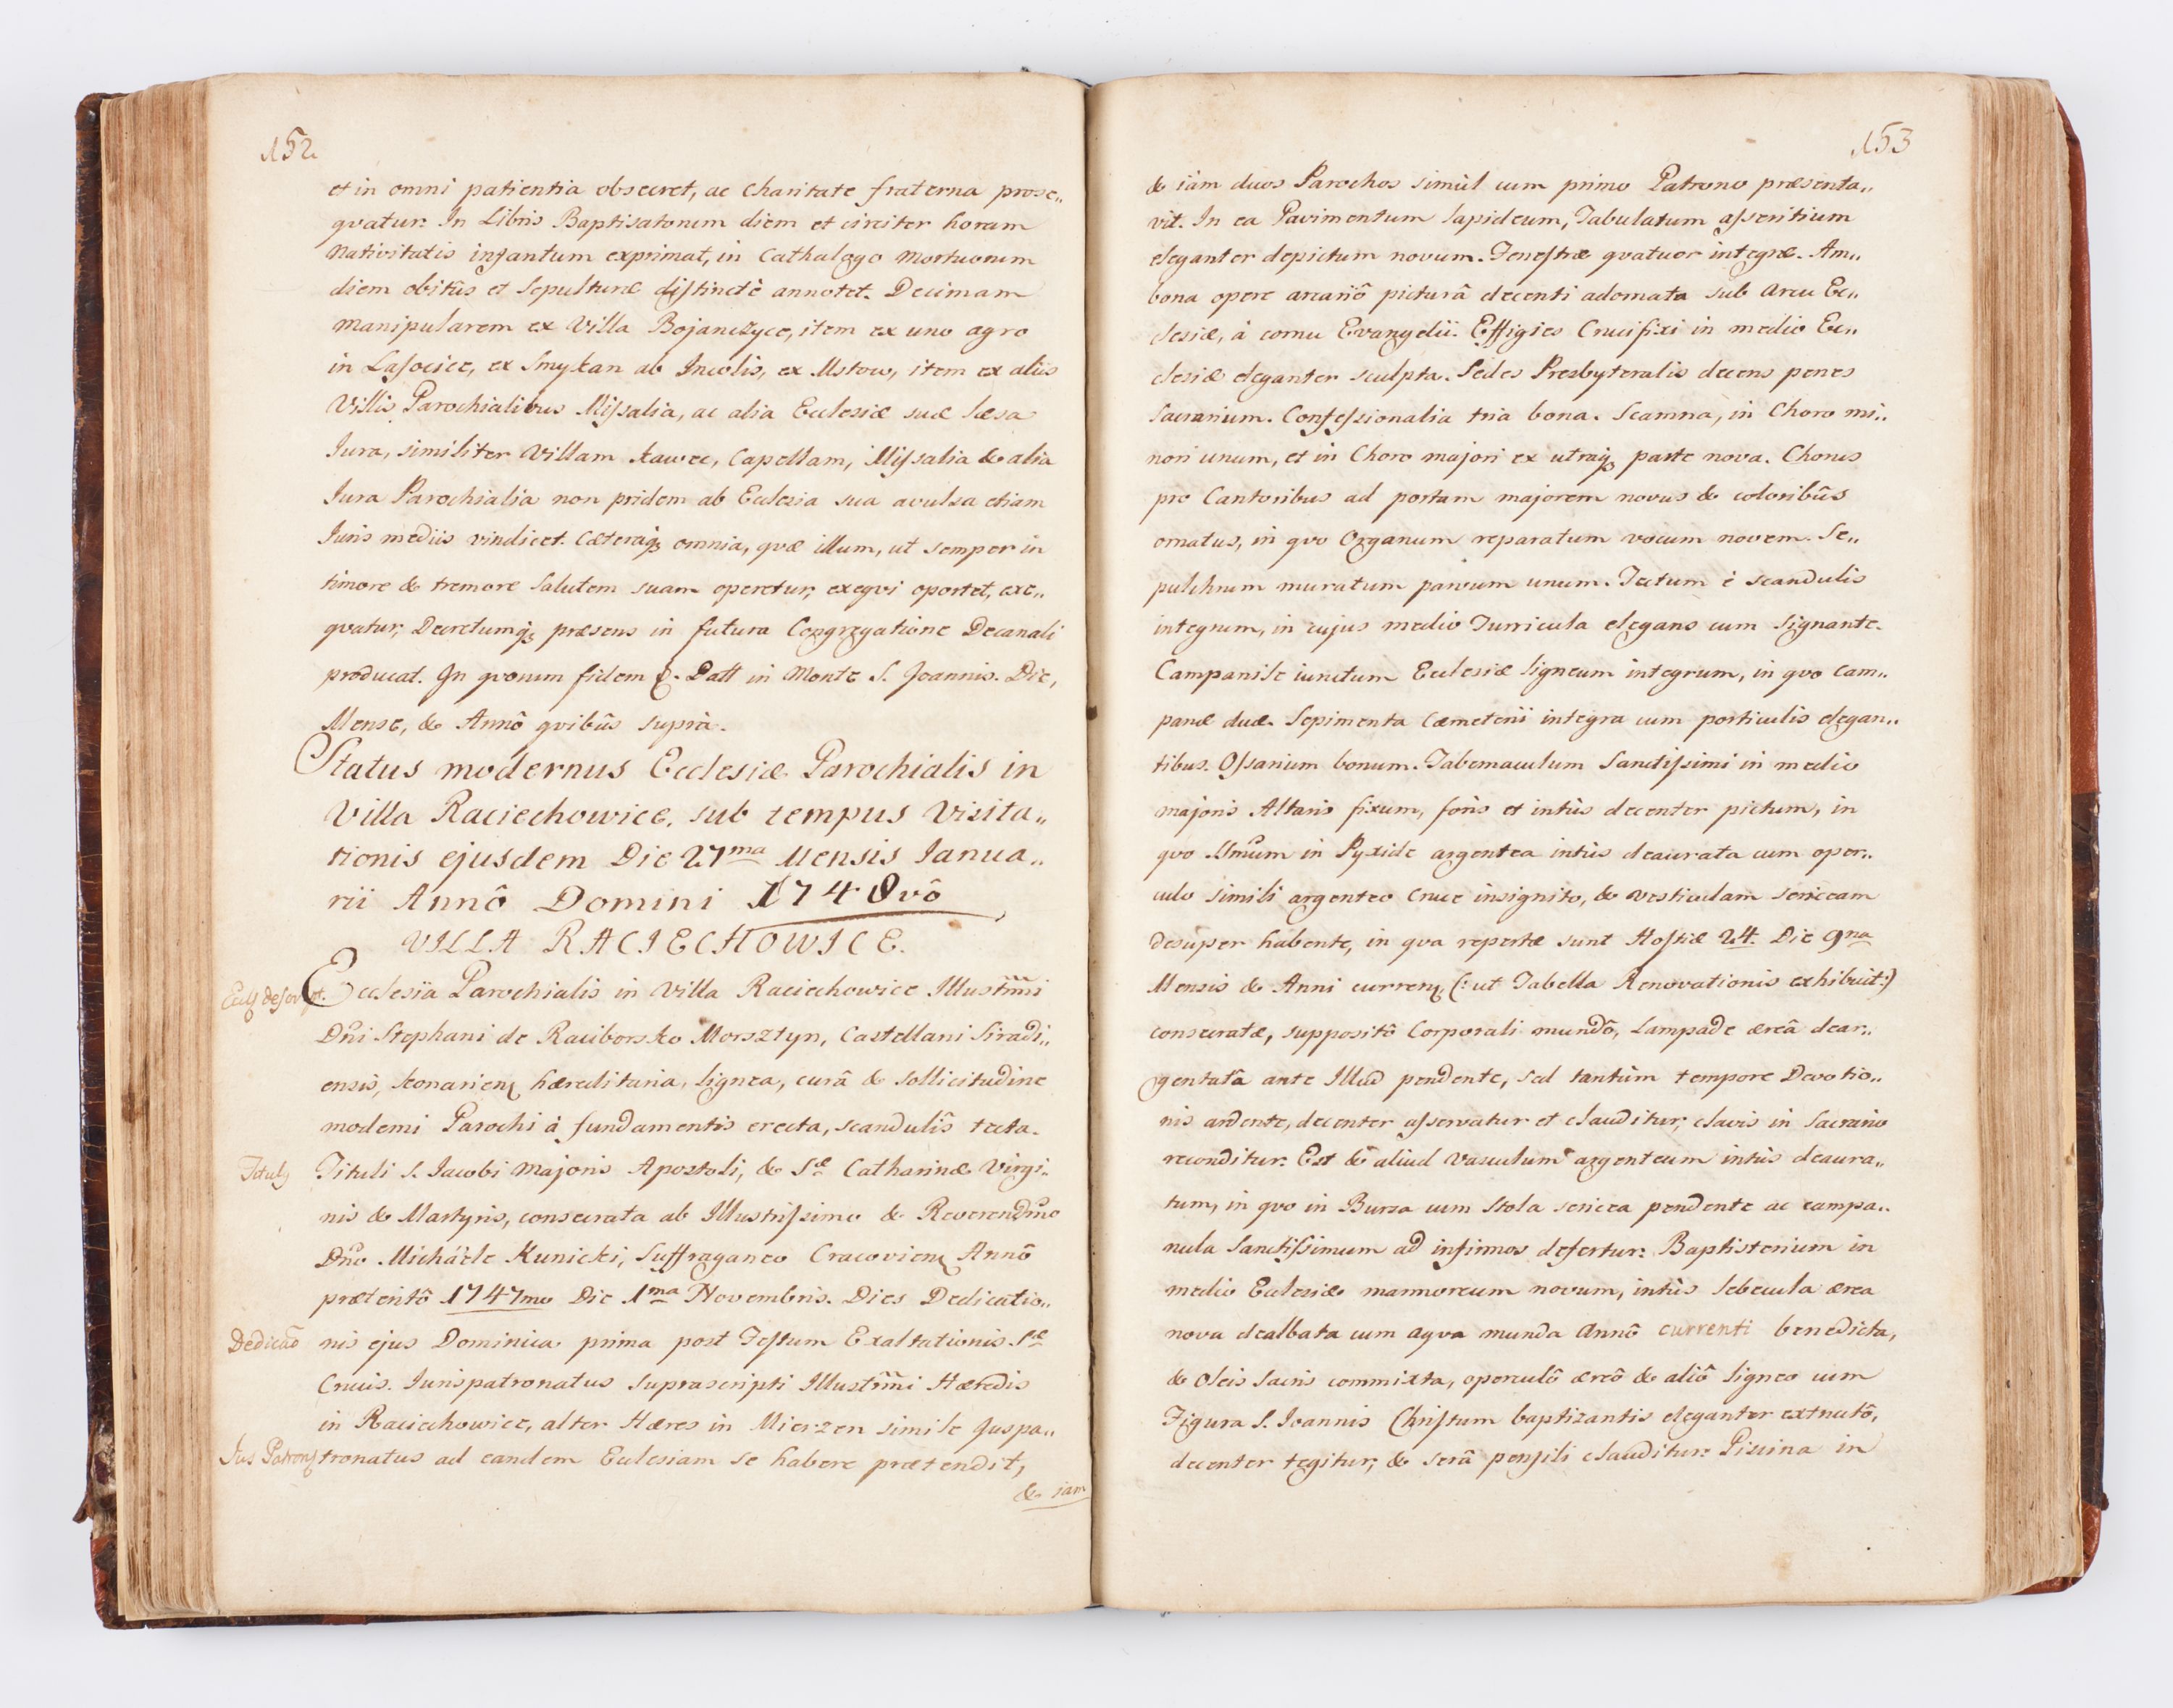 152
et in omni patientia obsecret, ac Charitate fraterna prose„
qvatur. In Libris Baptisatorum diem et circiter horam
Nativitatis infantum exprimat, in Cathalogo Mortuorum
diem obitûs et Sepulturæ distinctè annotet. Decimam
Manipularem ex Villa Bojanczyce, item ex uno agro
in Lasocice, ex Smykan ab Incolis, ex Mstow, item ex aliis
Villis Parochialibus Missalia, ac alia Ecclesiæ suæ læsa
Iura, similiter Villam Kawec, Capellam, Missalia & alia
Iura Parochialia non pridem ab Ecclesia sua avulsa etiam
Iuris mediis vindicet. Cæteraq; omnia, qvæ illum, ut semper in
timore & tremore Salutem suam operetur, exeqvi oportet, exe„
qvatur, Decretumq; præsens in futura Congregatione Decanali
producat. In qvorum fidem &. Datt in Monte S. Joannis. Die,
Mense, & Annô qvibûs suprà.
Status modernus Ecclesiæ Parochialis in
Villa Raciechowice, sub tempus Visita„
tionis ejusdem Die 27ma Mensis Ianua„
rii Annô Domini 1748vô
VILLA RACIECHOWICE.
Eccls descript.
Ecclesia Parochialis in Villa Raciechowice Illustrm̃i
Dñi Stephani de Raciborsko Morsztyn, Castellani Siradi„
ensis, hæreditaria, lignea, curâ & sollicitudine
moderni Parochi à fundamentis erecta, scandulîs tecta.
Tituls
Tituli S. Iacobi Majoris Apostoli, & Sæ Catharinæ Virgi„
nis & Martyris, consecrata ab Illustrissimo & Reverendm̃o
Dño Michaële Kunicki, Suffraganeo Cracovien Annô
præteritô 1747mo Die 1ma Novembris. Dies Dedicatio„
Dedicaõ
nis ejus Dominica prima post Festum Exaltationis Sæ
Crucis. Iurispatronatus suprascripti Illustrm̃i Hæredis
in Raciechowice, alter Hæres in Mierzen simile Juspa„
Jus Patrons
tronatus ad eandem Ecclesiam se habere prætendit,
& iam
153
& iàm duos Parochos simùl cum primo Patrono præsenta„
vit. In ea Pavimentum lapideum, Tabulatum asseritium
eleganter depictum novum. Fenestræ qvatuor integræ. Am„
bona opere arcariô picturâ decenti adornata sub Arcu Ec„
clesiæ, à cornu Evangelii. Effigies Crucifixi in medio Ec„
clesiæ eleganter sculpta. Sedes Presbyteralis decens penes
Sacrarium. Confessionalia tria bona. Scamna, in Choro mi„
nori unum, et in Choro majori ex utraq; parte nova. Chorus
pro Cantoribus ad portam majorem novus & coloribûs
ornatus, in qvo Organum reparatum vocum novem. Se„
pulchrum muratum parvum unum. Tectum è scandulis
integrum, in cujus medio Turricula elegans cum Signante.
Campanile iunctum Ecclesiæ ligneum integrum, in qvo Cam„
panæ duæ. Sepimenta Cæmeterii integra cum porticulis elegan„
tibus. Ossarium bonum. Tabernaculum Sanctissimi in medio
majoris Altaris fixum, foris et intùs decenter pictum, in
qvo in Pyxide argentea intùs deaurata cum oper„
culo simili argenteo cruce insignito, & vesticulam sericeam
desuper habente, in qva repertæ sunt Hostiæ 24. Die 9na
Mensis & Anni curren, (: ut Tabella Renovationis exhibuit:)
consecratæ, suppositô Corporali mundô, Lampade æreâ dear„
gentatâ ante Illud pendente, sed tantùm tempore Devotio„
nis ardente, decenter asservatur et clauditur, clavis in Sacrario
reconditur. Est & aliud Vasculum argenteum intùs deaura„
tum, in qvo in Bursa cum Stola sericea pendente ac campa„
nula Sanctissimum ad infirmos defertur. Baptisterium in
medio Ecclesiæ marmoreum novum, intùs lebecula ærea
nova dealbata cum Aqva munda Annô currenti benedicta,
& Oleis Sacris commixta, operculô æreô & aliô ligneo cum
Figura S. Ioannis Christum baptizantis eleganter extructô,
decenter tegitur, & serâ pensili clauditur. Piscina in